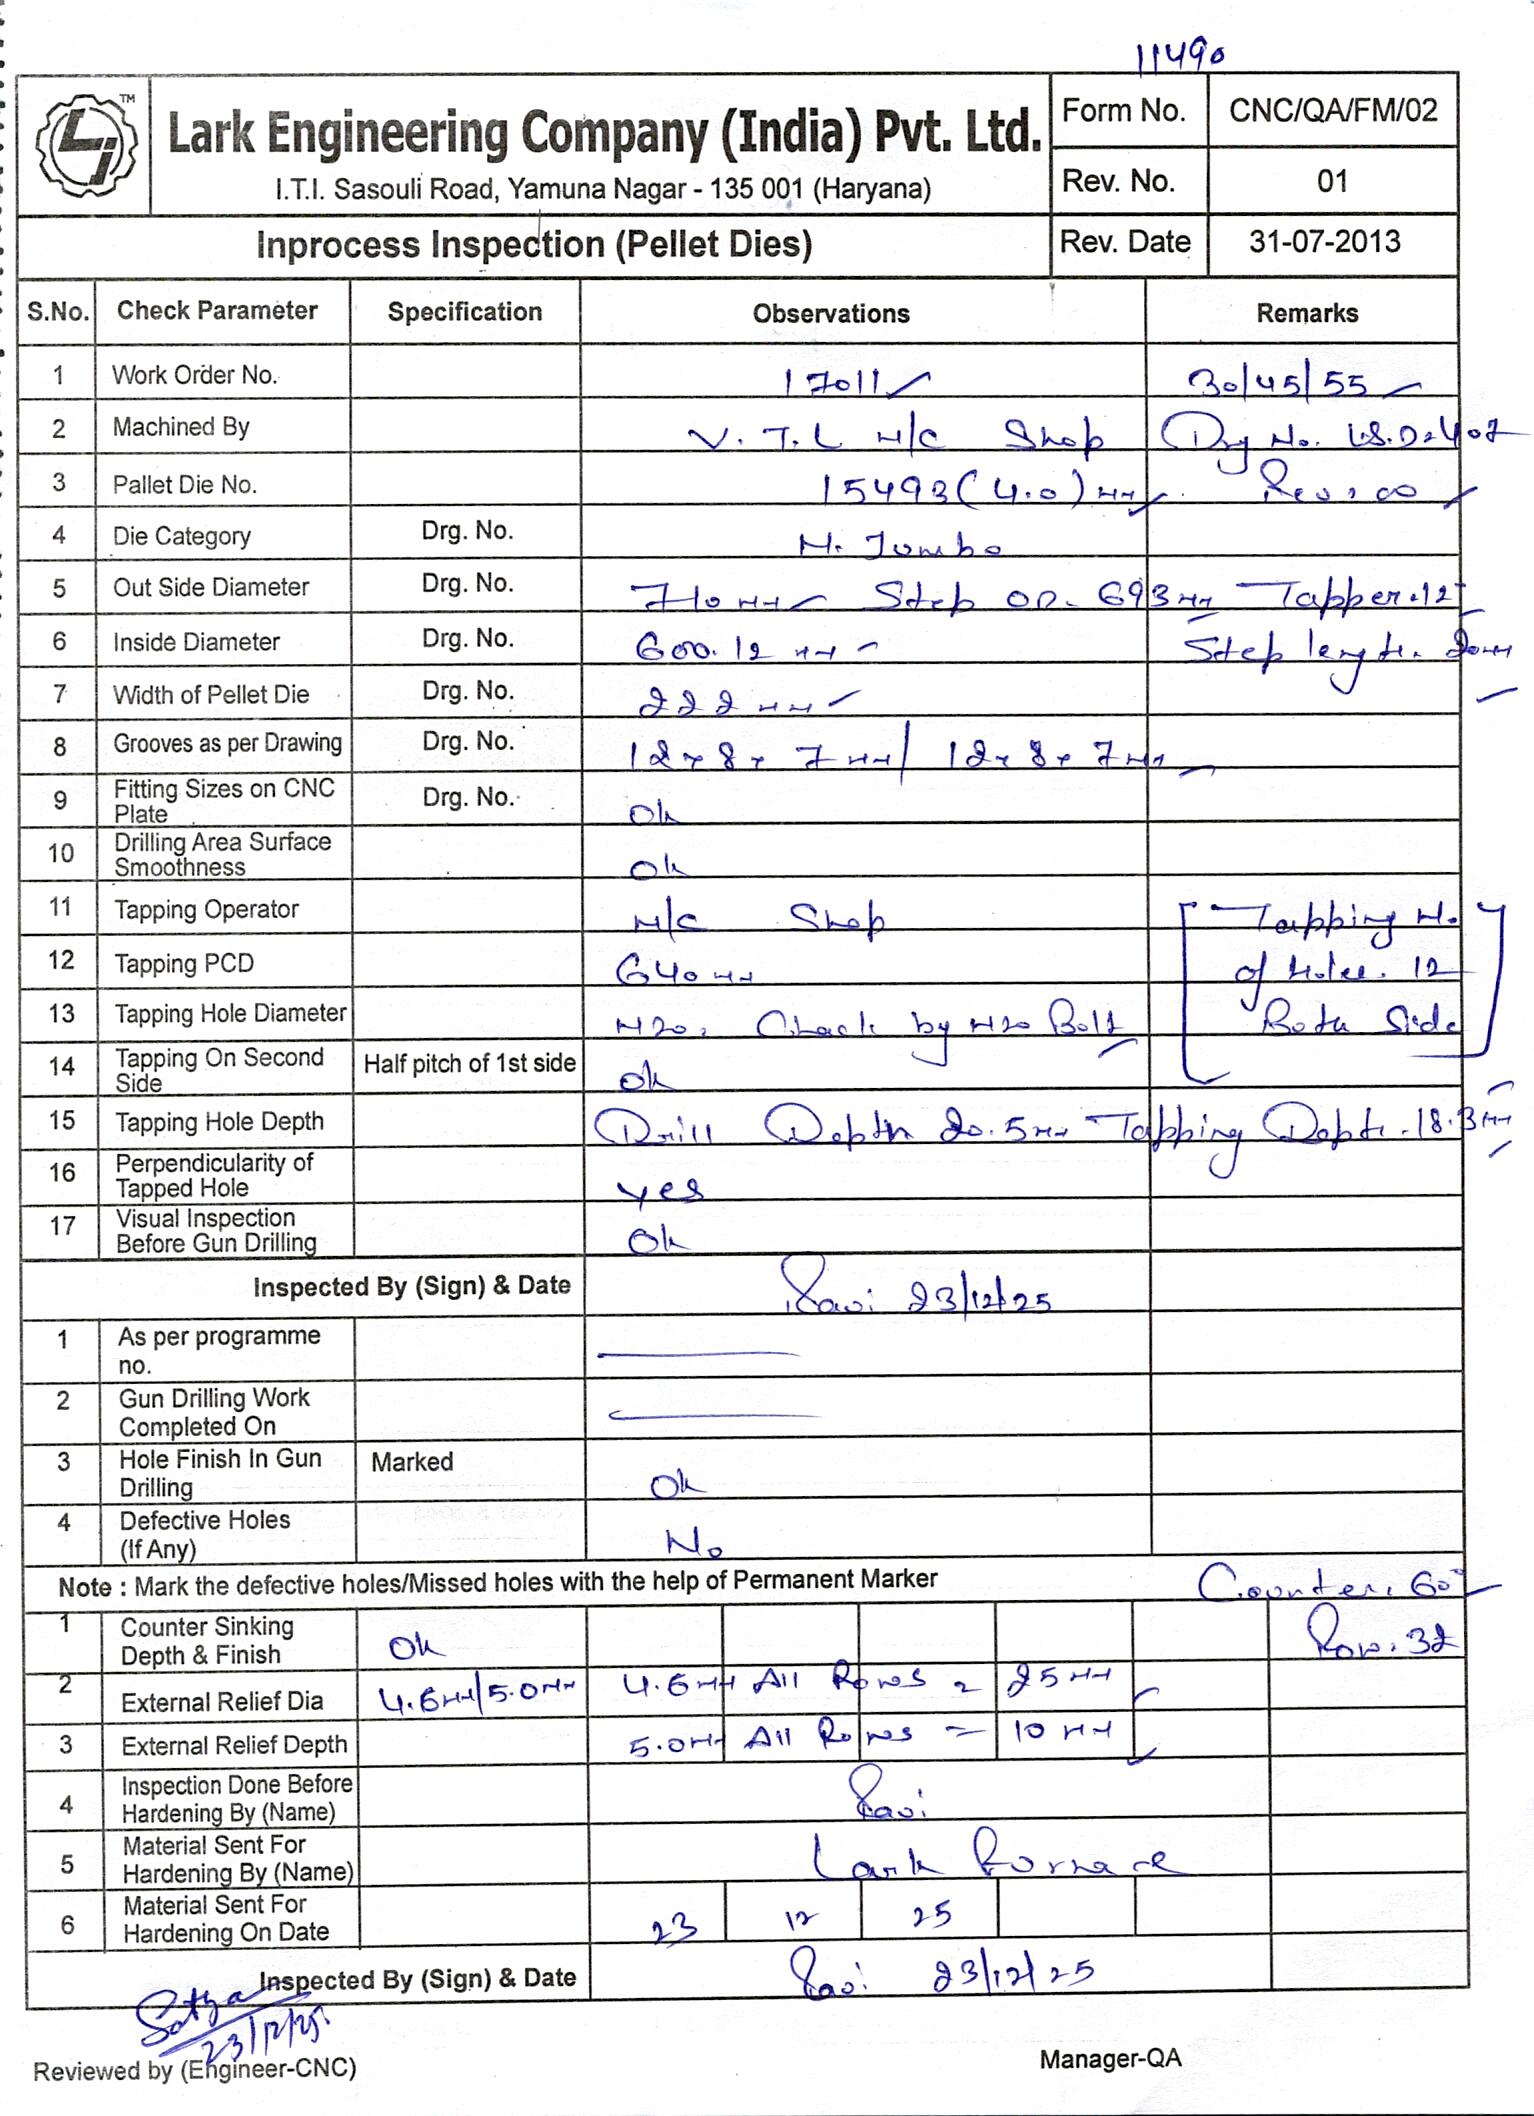 11490
TM
Lark Engineering Company (India) Pvt. Ltd.
I.T.I. Sasouli Road, Yamuna Nagar - 135 001 (Haryana)
Form No. CNC/QA/FM/02
Rev. No. 01
Inprocess Inspection (Pellet Dies)
Rev. Date 31-07-2013
S.No. Check Parameter Specification Observations Remarks
1 Work Order No. 17011 30/45/55
2 Machined By V.T.L M/C Shop Drg No. L.S.D-407
3 Pallet Die No. 15493(4.0)MM Rev.00
4 Die Category Drg. No. M. Jumbo
5 Out Side Diameter Drg. No. 710MM Step OD. 693MM Tapper.12°
6 Inside Diameter Drg. No. 600.12 MM Step length. 20MM
7 Width of Pellet Die Drg. No. 222MM
8 Grooves as per Drawing Drg. No. 12x8x7MM/12x8x7MM
9 Fitting Sizes on CNC Plate Drg. No. Ok
10 Drilling Area Surface Smoothness Ok
11 Tapping Operator M/C Shop Tapping No.
12 Tapping PCD 640MM of Holes. 12
13 Tapping Hole Diameter M20. Check by M20 Bolt Both Side
14 Tapping On Second Side Half pitch of 1st side Ok
15 Tapping Hole Depth Drill Depth 20.5MM Tapping Depth.18.3MM
16 Perpendicularity of Tapped Hole Yes
17 Visual Inspection Before Gun Drilling Ok
Inspected By (Sign) & Date Ravi 23/12/25
1 As per programme no.
2 Gun Drilling Work Completed On
3 Hole Finish In Gun Drilling Marked Ok
4 Defective Holes (If Any) No
Note : Mark the defective holes/Missed holes with the help of Permanent Marker Counter. 60°
1 Counter Sinking Depth & Finish Ok Row. 32
2 External Relief Dia 4.6MM/5.0MM 4.6MM All Rows = 25MM
3 External Relief Depth 5.0MM All Rows = 10MM
4 Inspection Done Before Hardening By (Name) Ravi
5 Material Sent For Hardening By (Name) Lark Furnace
6 Material Sent For Hardening On Date 23 12 25
Inspected By (Sign) & Date Ravi 23/12/25
Satya
23/12/25.
Reviewed by (Engineer-CNC) Manager-QA